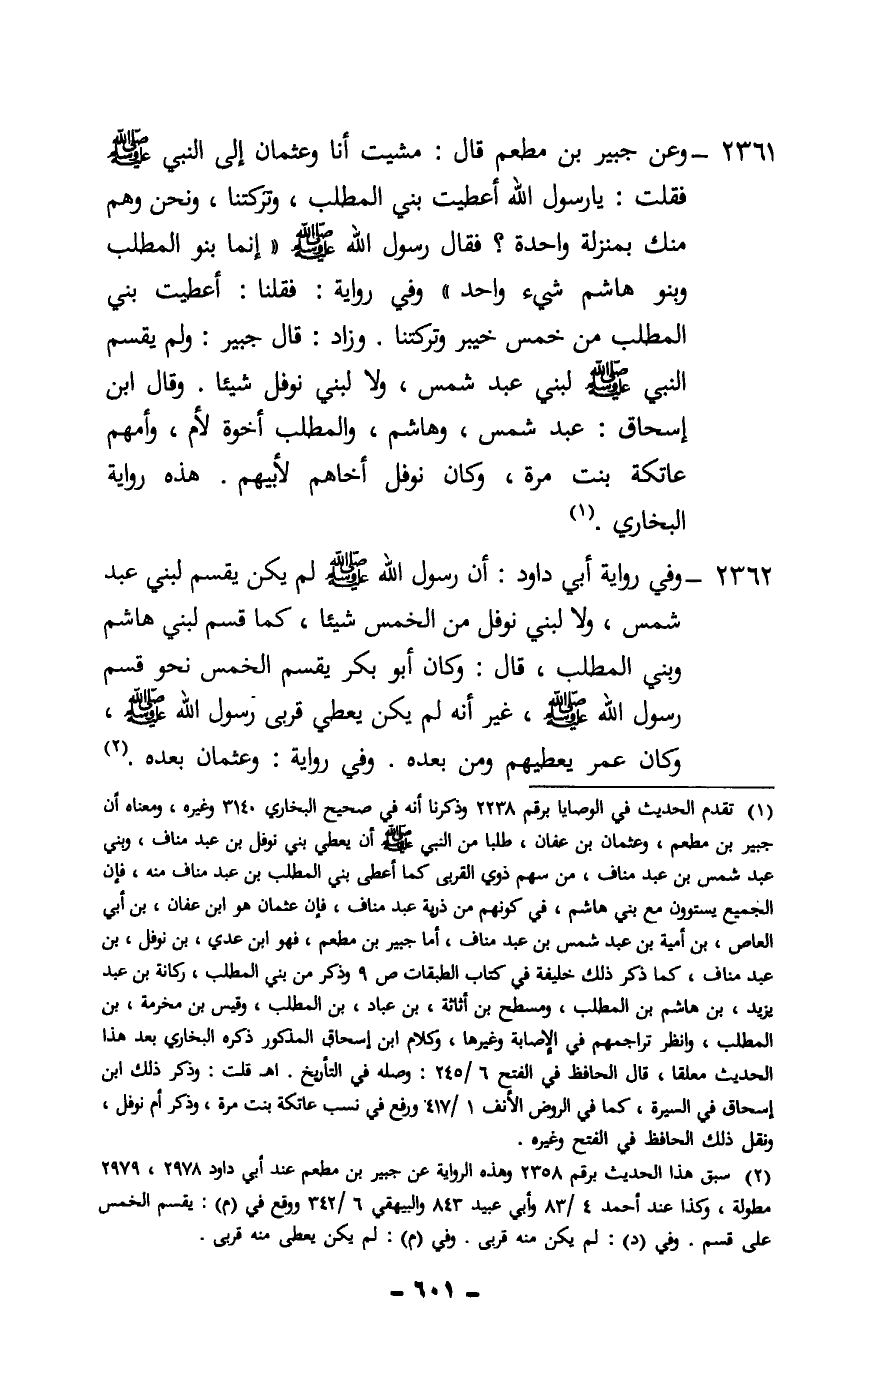 ٢٣٦١ ــ وعن جبير بن مطعم قال : مشيت أنا وعثمان إلى النبي ﷺ
فقلت : يارسول الله أعطيت بني المطلب ، وتركتنا ، ونحن وهم
منك بمنزلة واحدة ؟ فقال رسول الله ﷺ « إنما بنو المطلب
وبنو هاشم شيء واحد » وفي رواية : فقلنا : أعطيت بني
المطلب من خمس خيبر وتركتنا . وزاد : قال جبير : ولم يقسم
النبي ﷺ لبني عبد شمس ، ولا لبني نوفل شيئا . وقال ابن
إسحاق : عبد شمس ، وهاشم ، والمطلب أخوة لأم ، وأمهم
عاتكة بنت مرة ، وكان نوفل أخاهم لأبيهم . هذه رواية
البخاري .(١)
٢٣٦٢ ــ وفي رواية أبي داود : أن رسول الله ﷺ لم يكن يقسم لبني عبد
شمس ، ولا لبني نوفل من الخمس شيئا ، كما قسم لبني هاشم
وبني المطلب ، قال : وكان أبو بكر يقسم الخمس نحو قسم
رسول الله ﷺ ، غير أنه لم يكن يعطي قربى رسول الله ﷺ ،
وكان عمر يعطيهم ومن بعده . وفي رواية : وعثمان بعده .(٢)
(١) تقدم الحديث في الوصايا برقم ٢٢٣٨ وذكرنا أنه في صحيح البخاري ٣١٤٠ وغيره ، ومعناه أن
جبير بن مطعم ، وعثمان بن عفان ، طلبا من النبي ﷺ أن يعطي بني نوفل بن عبد مناف ، وبني
عبد شمس بن عبد مناف ، من سهم ذوي القربى كما أعطى بني المطلب بن عبد مناف منه ، فإن
الجميع يستوون مع بني هاشم ، في كونهم من ذرية عبد مناف ، فإن عثمان هو ابن عفان ، بن أبي
العاص ، بن أمية بن عبد شمس بن عبد مناف ، أما جبير بن مطعم ، فهو ابن عدي ، بن نوفل ، بن
عبد مناف ، كما ذكر ذلك خليفة في كتاب الطبقات ص ٩ وذكر من بني المطلب ، ركانة بن عبد
يزيد ، بن هاشم بن المطلب ، ومسطح بن أثاثة ، بن عباد ، بن المطلب ، وقيس بن مخرمة ، بن
المطلب ، وانظر تراجمهم في الإصابة وغيرها ، وكلام ابن إسحاق المذكور ذكره البخاري بعد هذا
الحديث معلقا ، قال الحافظ في الفتح ٦ /٢٤٥ : وصله في التأريخ . اهـ قلت : وذكر ذلك ابن
إسحاق في السيرة ، كما في الروض الأنف ١ /٤١٧ ورفع في نسب عاتكة بنت مرة ، وذكر أم نوفل ،
ونقل ذلك الحافظ في الفتح وغيره .
(٢) سبق هذا الحديث برقم ٢٣٥٨ وهذه الرواية عن جبير بن مطعم عند أبي داود ٢٩٧٨ ، ٢٩٧٩
مطولة ، وكذا عند أحمد ٤ /٨٣ وأبي عبيد ٨٤٣ والبيهقي ٦ /٣٤٢ ووقع في (م) : يقسم الخمس
على قسم . وفي (د) : لم يكن منه قربى . وفي (م) : لم يكن يعطى منه قربى .
ــ ٦٠١ ــ